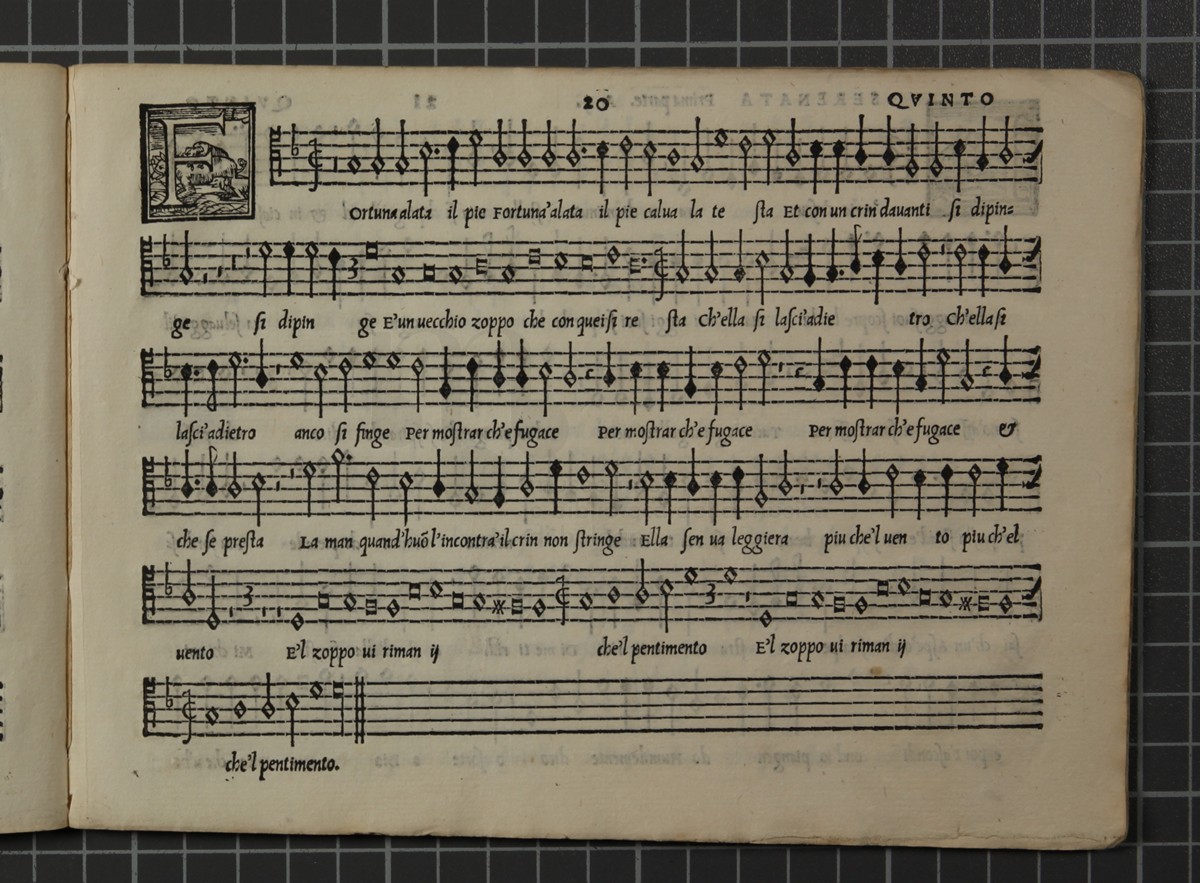 20 QVINTO
FOrtuna alata il pie Fortuna'alata il pie calua la te sta Et con un crin dauanti si dipin=
ge si dipin ge E'un uecchio zoppo che con quei si re sta Ch'ella si lasci'adie tro Ch'ella si
lasci'adietro anco si finge Per mostrar ch'e fugace Per mostrar ch'e fugace Per mostrar ch'e fugace &
che se presta La man quand'huõ l'incontra'il crin non stringe Ella sen ua leggiera piu che'l uen to piu ch'el
uento E'l zoppo ui riman ij che'l pentimento E'l zoppo ui riman ij
che'l pentimento.